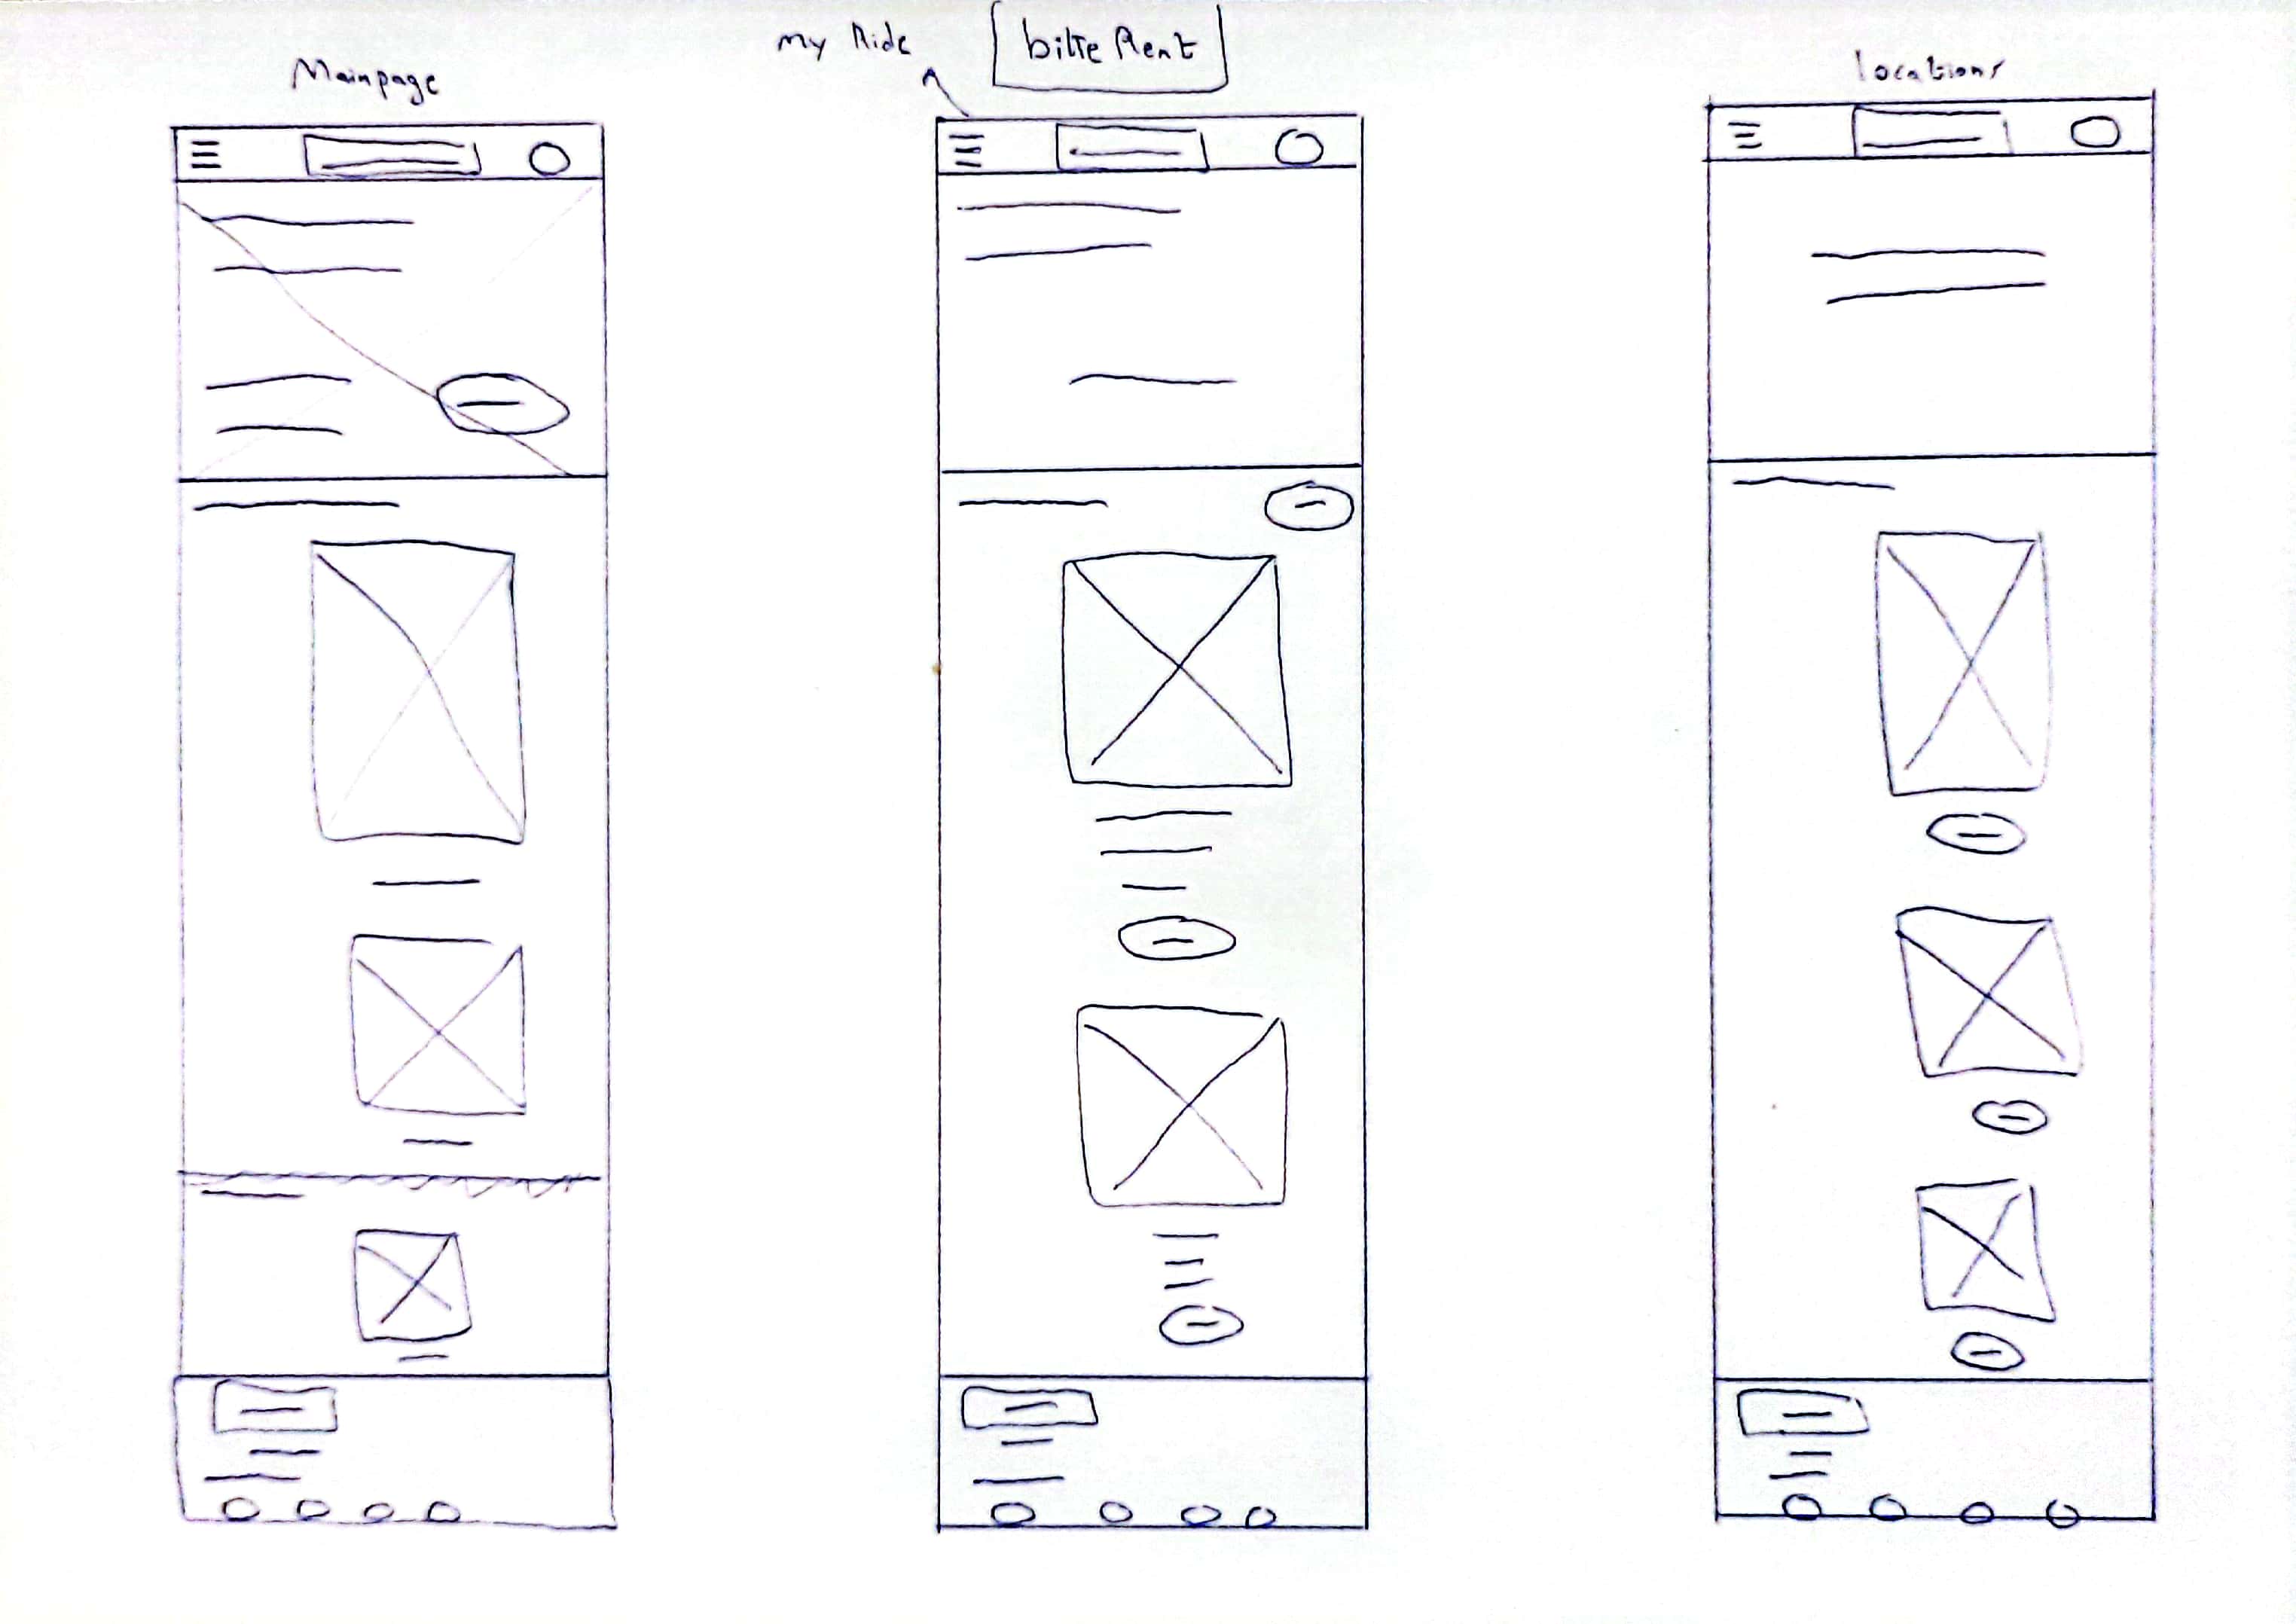 Mainpage
my Ride
bike Rent
locations